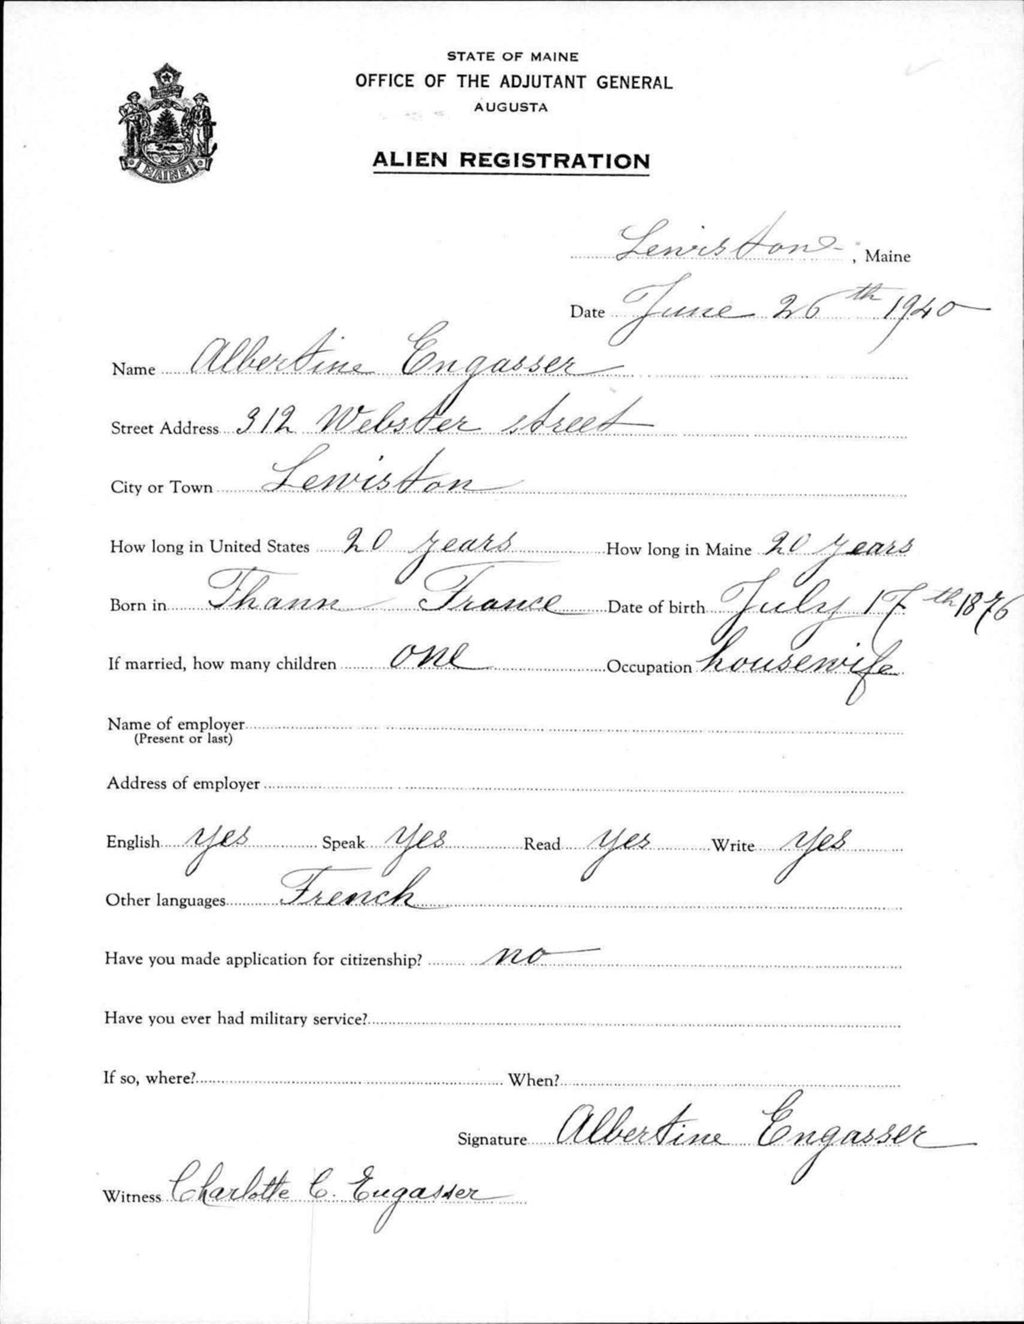 STATE OF MAINE
OFFICE OF THE ADJUTANT GENERAL
AUGUSTA
ALIEN REGISTRATION
MAINE
Lewiston, Maine
Date June 26th 1940
Name Albertine Engasser
Street Address 312 Webster street
City or Town Lewiston
How long in United States 20 years How long in Maine 20 years
Born in Thann France Date of birth July 17th 1876
If married, how many children one Occupation housewife
Name of employer
(Present or last)
Address of employer
English yes Speak yes Read yes Write yes
Other languages French
Have you made application for citizenship? no
Have you ever had military service?
If so, where? When?
Signature Albertine Engasser
Witness Charlotte C. Engasser